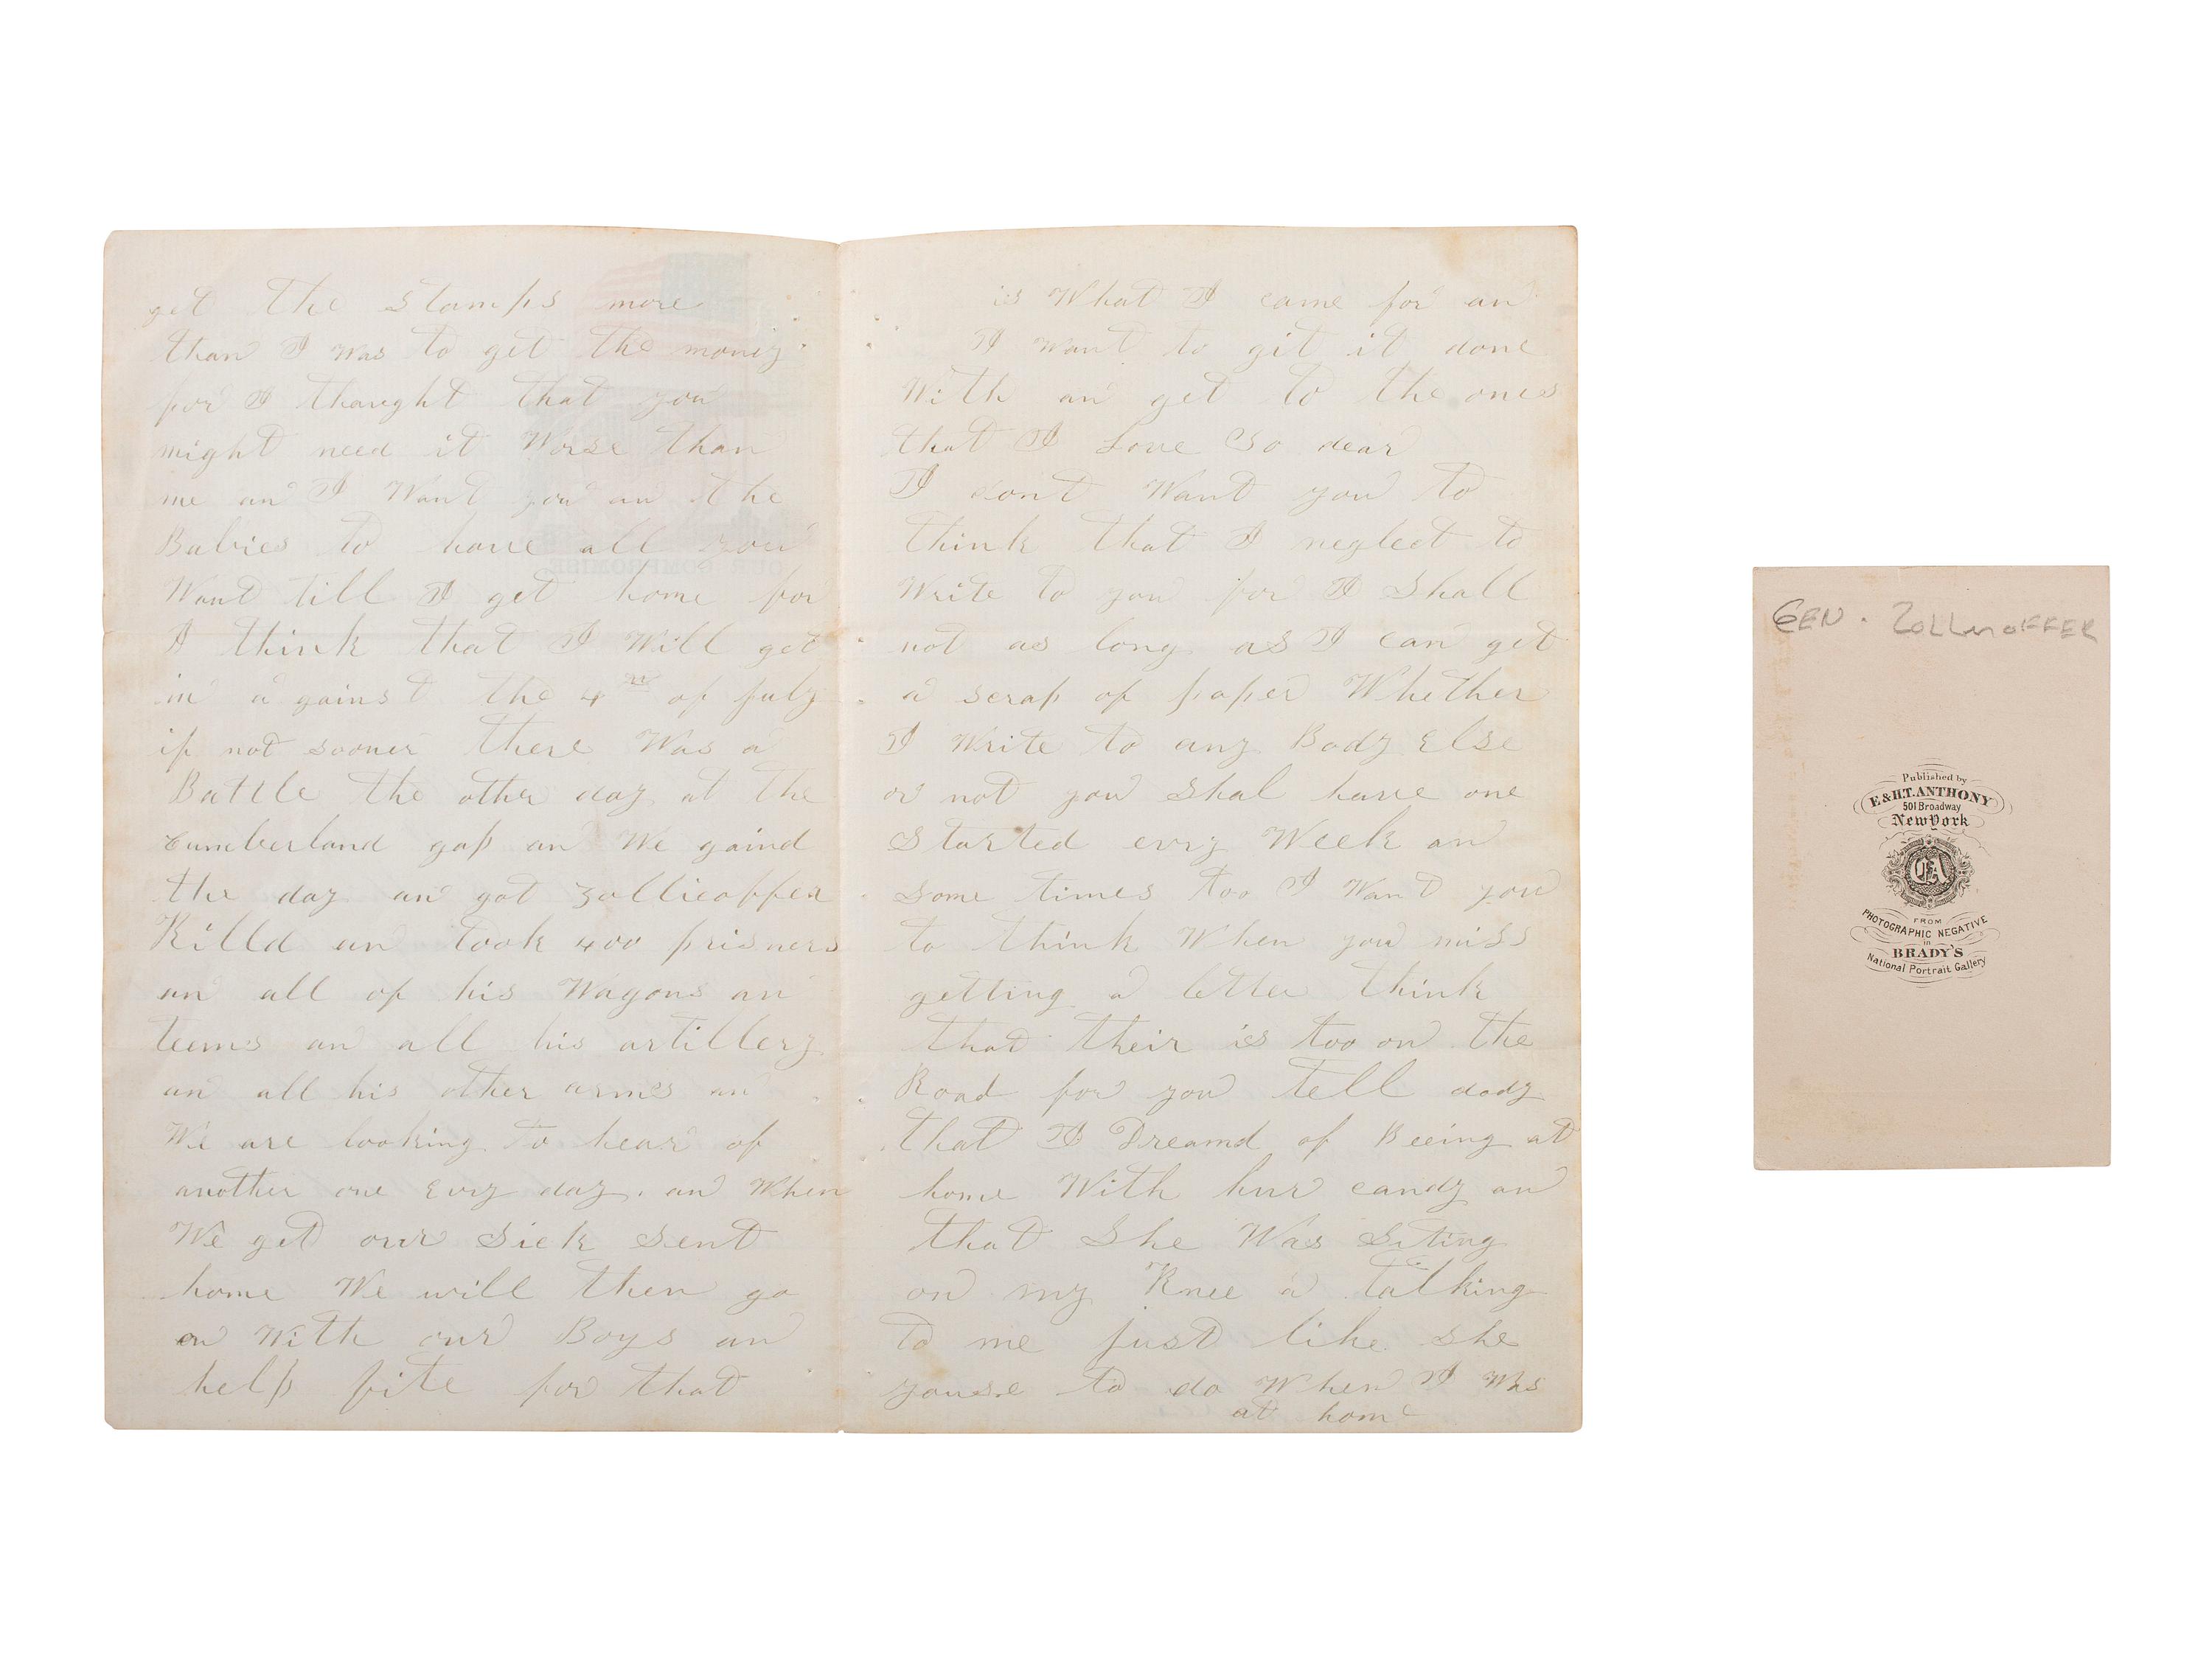 get the stamps more
than I Was to get the money
for I thaught that you
might need it Worse than
me an I Want you an the
Babies to have all you
Want till I get home for
I think that I Will get
in a gainst the 4th of July
if not sooner there Was a
Battle the other day at the
Cumberland gap an We gaind
the day an got Zollicoffer
Killd an took 400 prisners
an all of his Wagons an
teems an all his artillery
an all his other arms an
We are looking to hear of
another one Evry day. an When
We get our Sick Sent
home We will then go
on With our Boys an
help fite for that
is What I came for an
I want to git it done
With an get to the ones
that I Love So dear
I dont Want you to
think that I neglect to
Write to you for I Shall
not as long as I can get
a scrap of paper Whether
I Write to any Body Else
or not you Shal have one
Started evry Week an
Some times too I Want you
to think When you miss
getting a letter think
that their is too on the
Road for you tell dody
that I Dreamd of Beeing at
home With hur candy an
that She Was Siting
on my Knee a talking
to me just like she
youse to do When I Was
at home
GEN. ZOLLICOFFER
Published by
E & H.T. ANTHONY
501 Broadway
New York
EA
FROM
PHOTOGRAPHIC NEGATIVE
in
BRADY'S
National Portrait Gallery